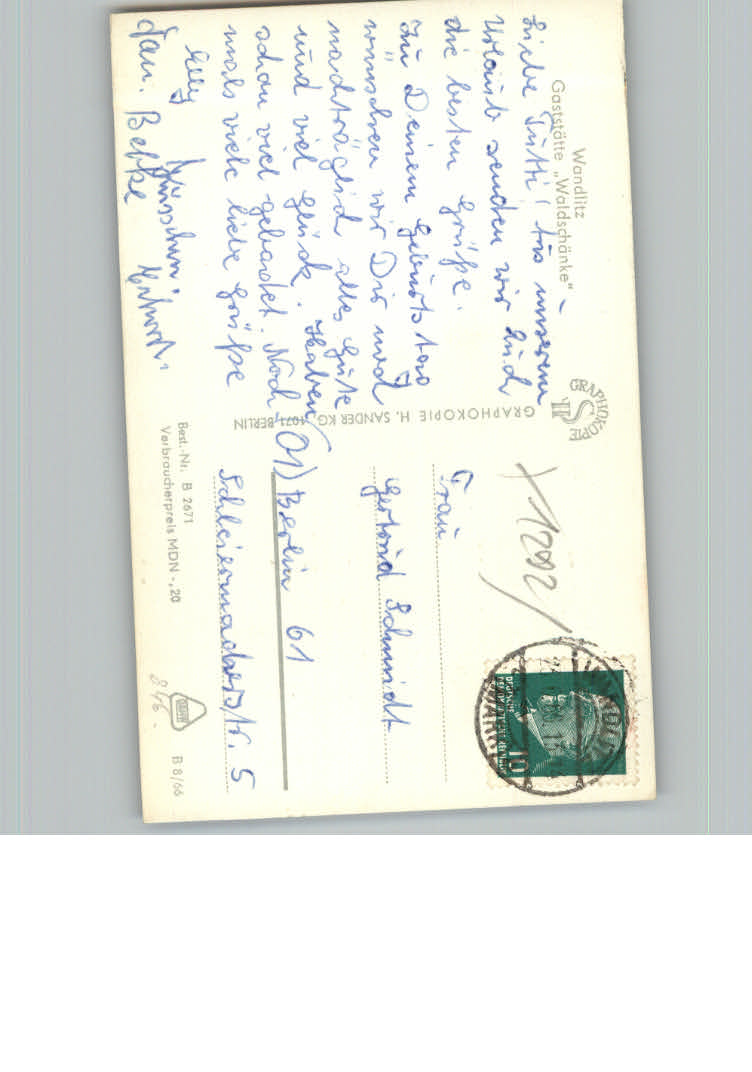 Wandlitz
Gaststätte „Waldschänke“
Liebe Tutti! Aus unserem
Urlaub senden wir Euch
die besten Grüße.
Zu Deinem Geburtstag
wünschen wir Dir noch
nachträglich alles Gute
und viel Glück. Haben
schon viel gebadet. Noch-
mals viele liebe Grüße
Elly
Fam. Bethke
GRAPHOKOPIE
GRAPHOKOPIE H. SANDER KG, 1071 BERLIN
1292
DEUTSCHE
10
WANDLITZ
Frau
Gertrud Schmidt
(01) Berlin 61
Schleiermacherstr. 5
Best.-Nr. B 2671
Verbraucherpreis MDN -,20
B 8/66